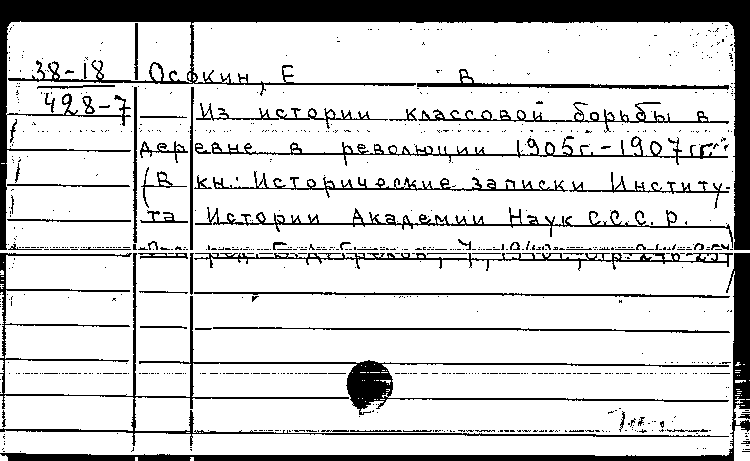 38-18 Осокин, Е В
428-7 Из истории классовой борьбы в
деревне в революции 1905г.-1907гг.
(В кн.: Исторические записки Институ-
та Истории Академии Наук С.С.С.Р.
ред. Б. Д. Греков, 7, 1940г., стр. 246-257)